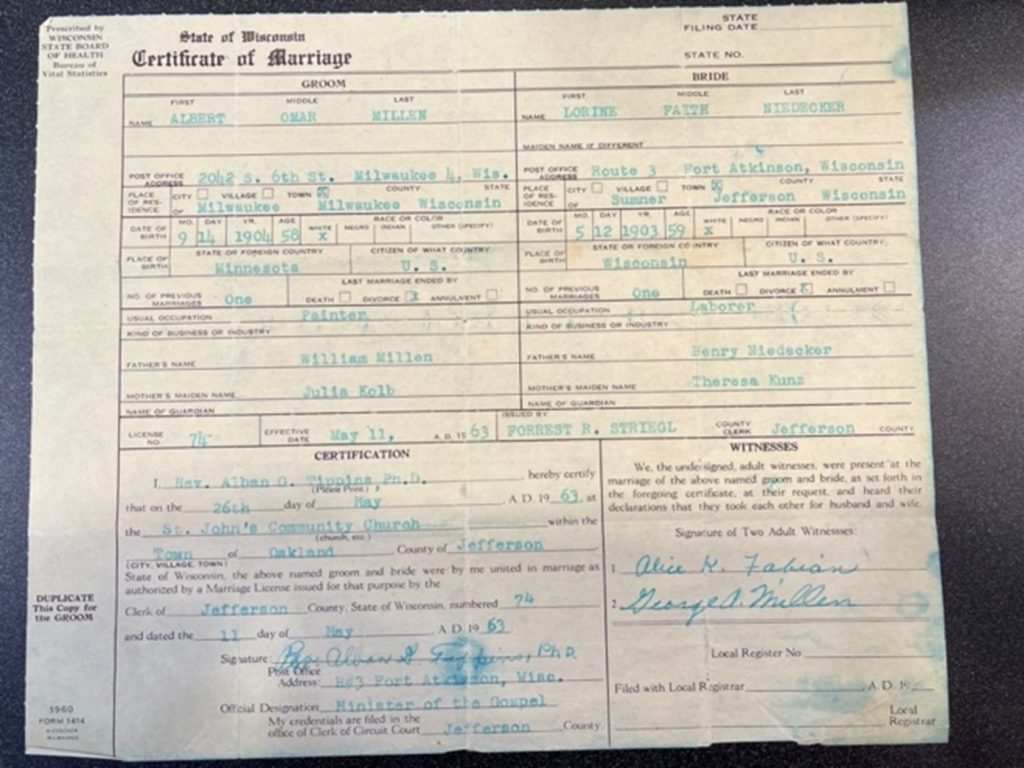 Prescribed by
WISCONSIN
STATE BOARD
OF HEALTH
Bureau of
Vital Statistics
State of Wisconsin
Certificate of Marriage
STATE
FILING DATE
STATE NO.
GROOM
BRIDE
FIRST MIDDLE LAST
NAME ALBERT OMAR MILLEN
FIRST MIDDLE LAST
NAME LORINE FAITH NIEDECKER
MAIDEN NAME IF DIFFERENT
POST OFFICE ADDRESS 2042 S. 6th St. Milwaukee 4, Wis.
POST OFFICE ADDRESS Route 3 Fort Atkinson, Wisconsin
PLACE OF RESIDENCE CITY VILLAGE TOWN X COUNTY STATE
OF Milwaukee Milwaukee Wisconsin
PLACE OF RESIDENCE CITY VILLAGE TOWN X COUNTY STATE
OF Sumner Jefferson Wisconsin
MO. DAY YR. AGE RACE OR COLOR
WHITE NEGRO INDIAN OTHER (SPECIFY)
DATE OF BIRTH 9 14 1904 58 X
MO. DAY YR. AGE RACE OR COLOR
WHITE NEGRO INDIAN OTHER (SPECIFY)
DATE OF BIRTH 5 12 1903 59 X
STATE OR FOREIGN COUNTRY CITIZEN OF WHAT COUNTRY
PLACE OF BIRTH Minnesota U. S.
STATE OR FOREIGN COUNTRY CITIZEN OF WHAT COUNTRY
PLACE OF BIRTH Wisconsin U. S.
LAST MARRIAGE ENDED BY
NO. OF PREVIOUS MARRIAGES One DEATH DIVORCE X ANNULMENT
LAST MARRIAGE ENDED BY
NO. OF PREVIOUS MARRIAGES One DEATH DIVORCE X ANNULMENT
USUAL OCCUPATION Painter
USUAL OCCUPATION Laborer
KIND OF BUSINESS OR INDUSTRY
KIND OF BUSINESS OR INDUSTRY
FATHER'S NAME William Millen
FATHER'S NAME Henry Niedecker
MOTHER'S MAIDEN NAME Julia Kolb
MOTHER'S MAIDEN NAME Theresa Kunz
NAME OF GUARDIAN
NAME OF GUARDIAN
LICENSE NO. 74 EFFECTIVE DATE May 11, A.D. 19 63 ISSUED BY FORREST R. STRIEGL COUNTY CLERK Jefferson COUNTY
CERTIFICATION
I, Rev. Alban G. Tippins, Ph.D. hereby certify
(Please Print)
that on the 26th day of May A.D. 19 63, at
the St. John's Community Church within the
(church, etc.)
Town of Oakland County of Jefferson
(CITY, VILLAGE, TOWN)
State of Wisconsin, the above named groom and bride were by me united in marriage as
authorized by a Marriage License issued for that purpose by the
Clerk of Jefferson County, State of Wisconsin, numbered 74
and dated the 11 day of May A.D. 19 63
Signature: Rev Alban G Tippins, Ph D.
Post Office
Address: R#3 Fort Atkinson, Wisc.
Official Designation Minister of the Gospel
My credentials are filed in the
office of Clerk of Circuit Court Jefferson County.
WITNESSES
We, the undersigned, adult witnesses, were present at the
marriage of the above named groom and bride, as set forth in
the foregoing certificate, at their request, and heard their
declarations that they took each other for husband and wife.
Signature of Two Adult Witnesses:
1. Alice K. Fabian
2. George A. Millen
Local Register No
Filed with Local Registrar A.D. 19
Local
Registrar
DUPLICATE
This Copy for
the GROOM
1960
FORM 1414